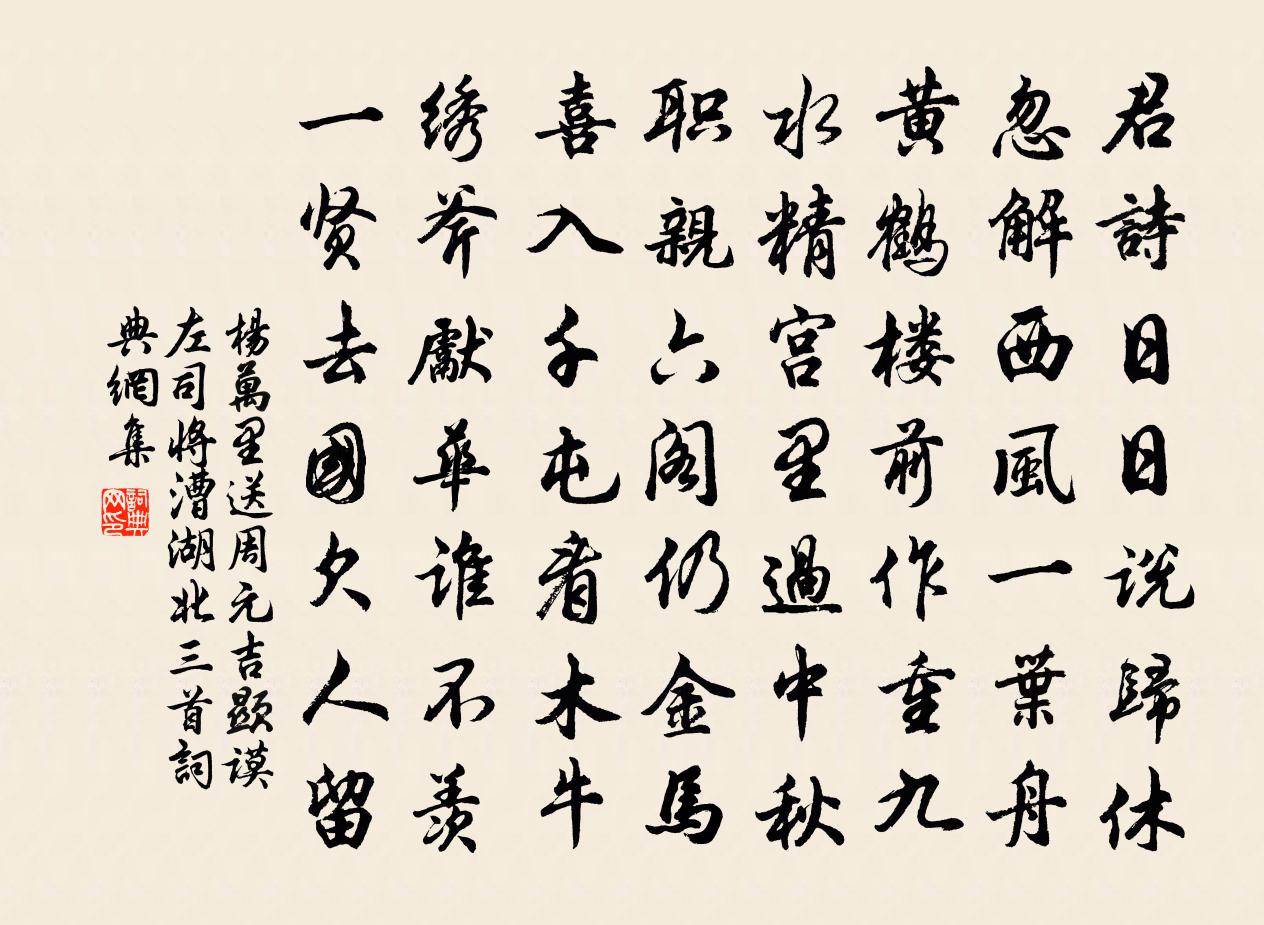 君詩日日说歸休
忽解西風一葉舟
黄鶴楼前作重九
水精宫里過中秋
职親六阁仍金馬
喜入千屯看木牛
绣斧獻華谁不羨
一贤去國欠人留
楊萬里送周元吉顕谟
左司将漕湖北三首詞
典網集
詞典网印